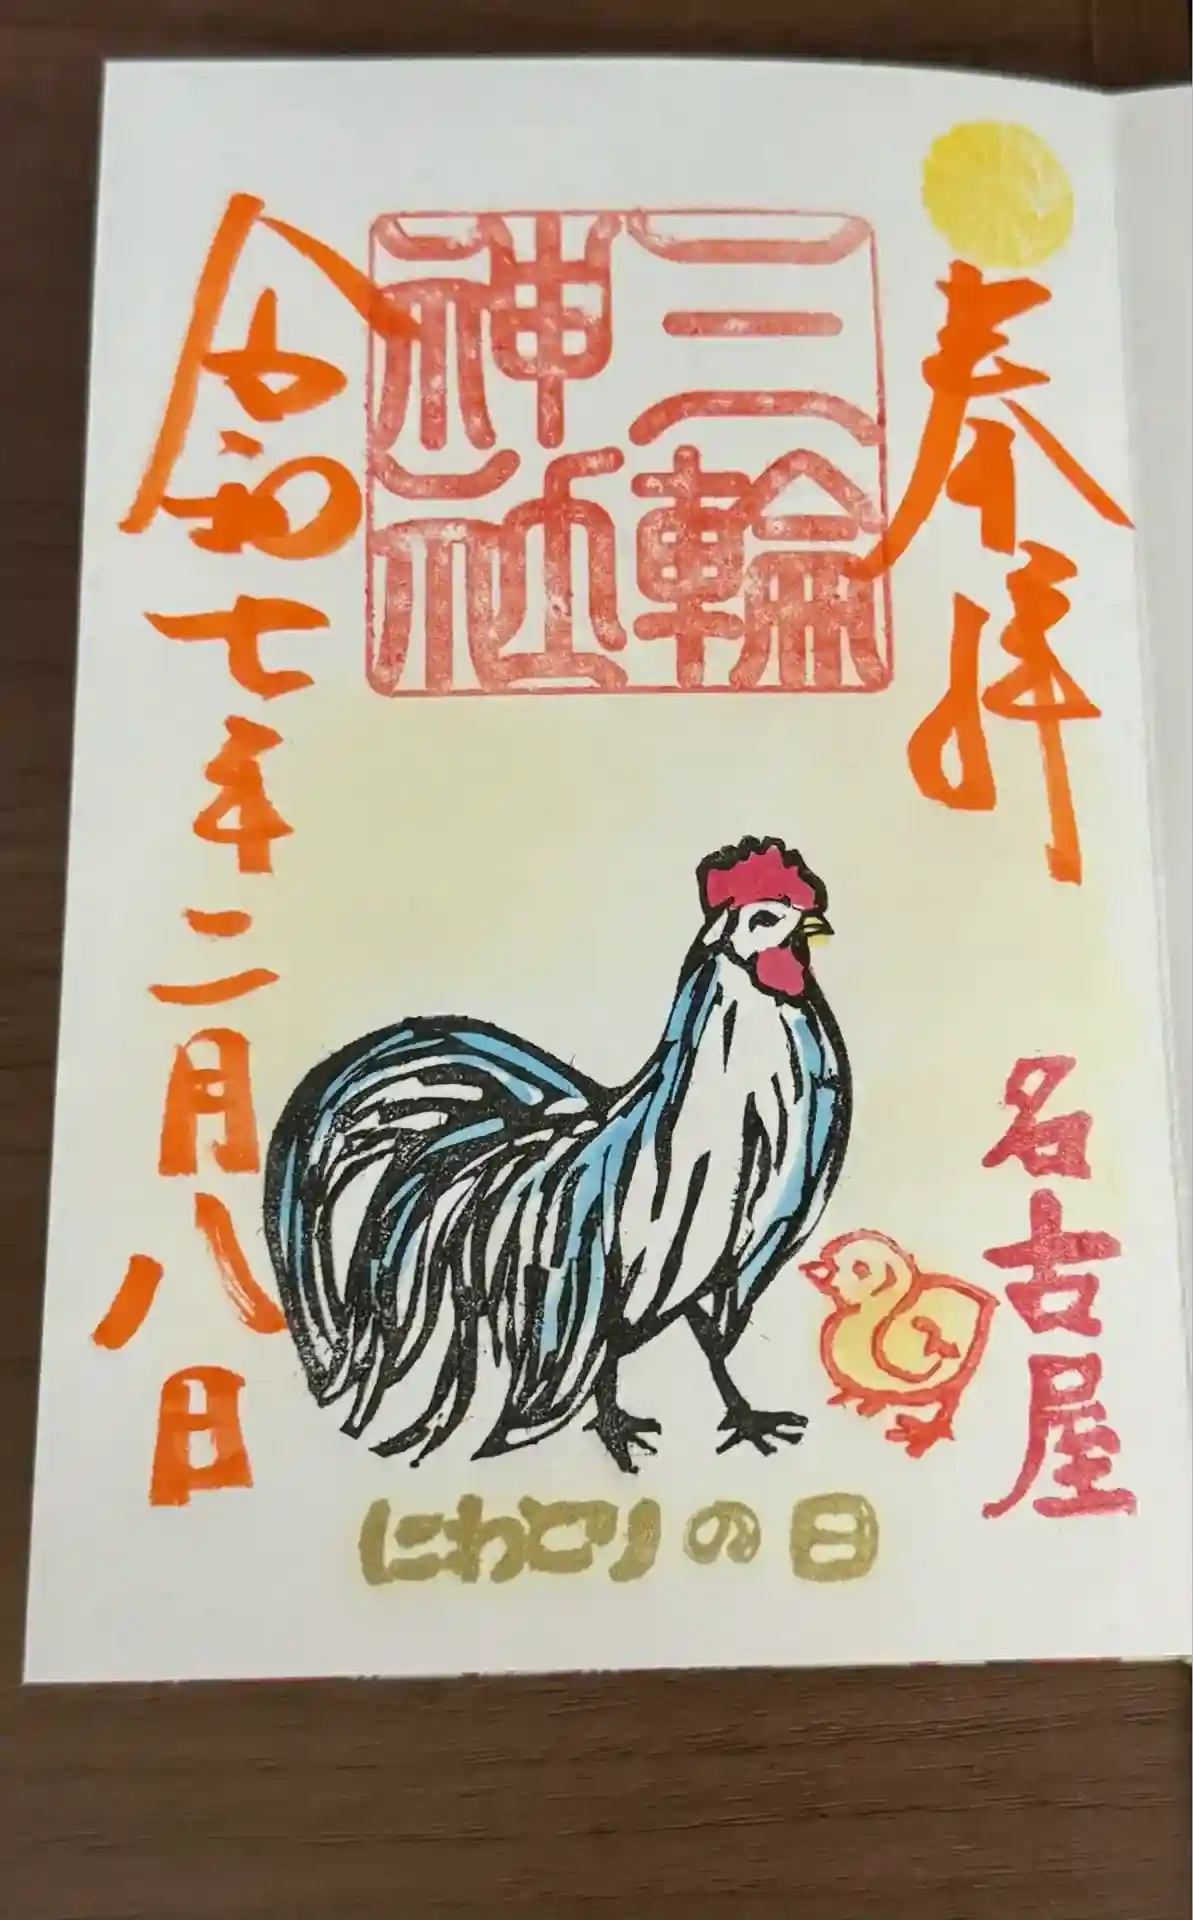 奉拝
名古屋
三輪
神社
令和七年二月八日
にわとりの日